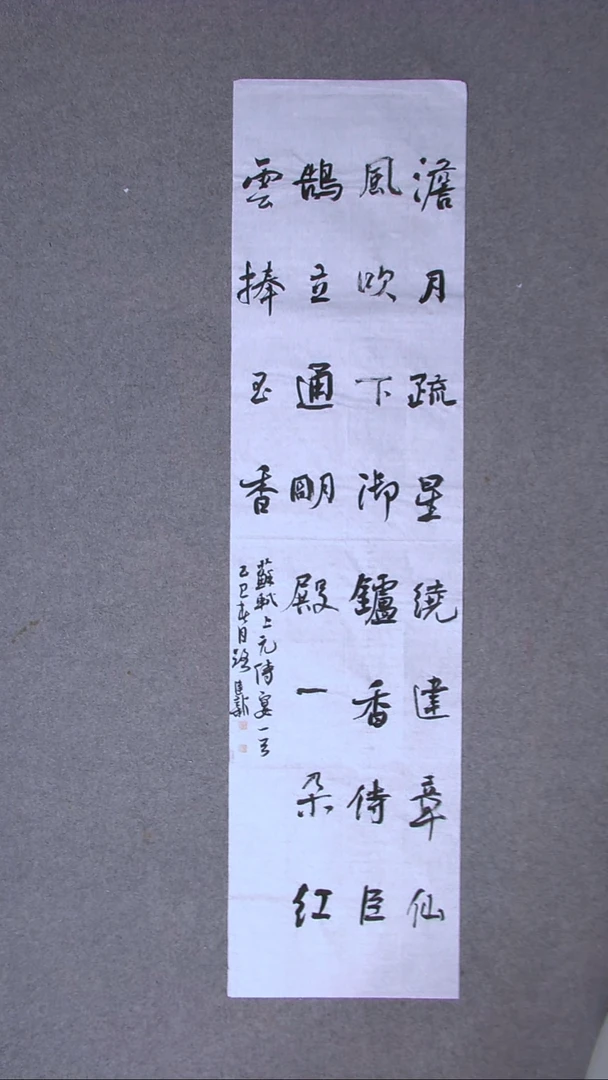 澹月疏星繞建章仙
風吹下御鑪香侍臣
鵠立通明殿一朵紅
雲捧玉香
蘇軾上元侍宴一首
乙巳春月 建新